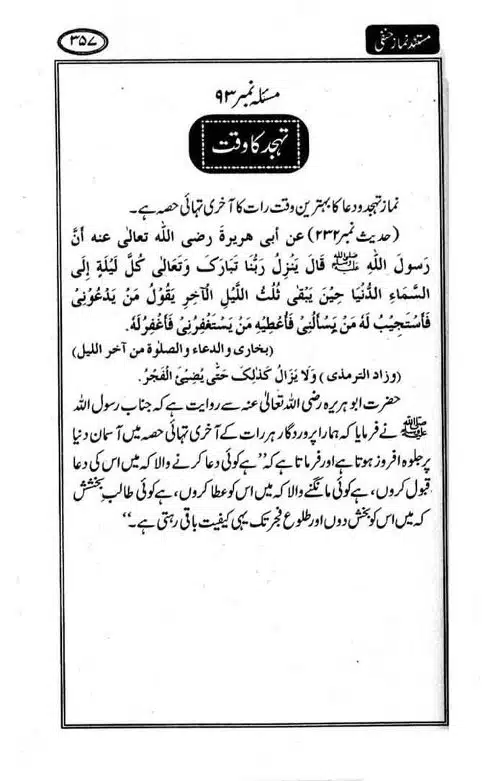 مستند نماز حنفی
۳۵۷
مسئلہ نمبر ۹۳
تہجد کا وقت
نماز تہجد و دعا کا بہترین وقت رات کا آخری تہائی حصہ ہے۔
(حدیث نمبر ۲۳۲) عن أبی هریرة رضی الله تعالی عنه أنَّ
رَسولَ اللهِ ﷺ قَالَ يَنزِلُ رَبُّنَا تَبارَکَ وَتَعَالَی کُلَّ لَيلَةٍ إِلَی
السَّمَاءِ الدُّنْيَا حِيْنَ يَبْقٰی ثُلُثُ اللَّيْلِ الْآخِرِ يَقُوْلُ مَنْ يَدْعُوْنِیْ
فَأَسْتَجِيْبُ لَهُ مَنْ يَسْأَلُنِیْ فَأُعْطِيْهِ مَنْ يَسْتَغْفِرُنِیْ فَأَغْفِرُ لَهُ.
(بخاری و الدعاء و الصلوة من آخر الليل)
(وزاد الترمذی) وَلَا يَزَالُ كَذٰلِكَ حَتّٰى يُضِيْئَ الْفَجْرُ.
حضرت ابو ہریرہ رضی اللہ تعالیٰ عنہ سے روایت ہے کہ جناب رسول اللہ
ﷺ نے فرمایا کہ ہمارا پروردگار ہر رات کے آخری تہائی حصہ میں آسمان دنیا
پر جلوہ افروز ہوتا ہے اور فرماتا ہے کہ ”ہے کوئی دعا کرنے والا کہ میں اس کی دعا
قبول کروں، ہے کوئی مانگنے والا کہ میں اس کو عطا کروں، ہے کوئی طالبِ بخشش
کہ میں اس کو بخش دوں اور طلوع فجر تک یہی کیفیت باقی رہتی ہے۔“